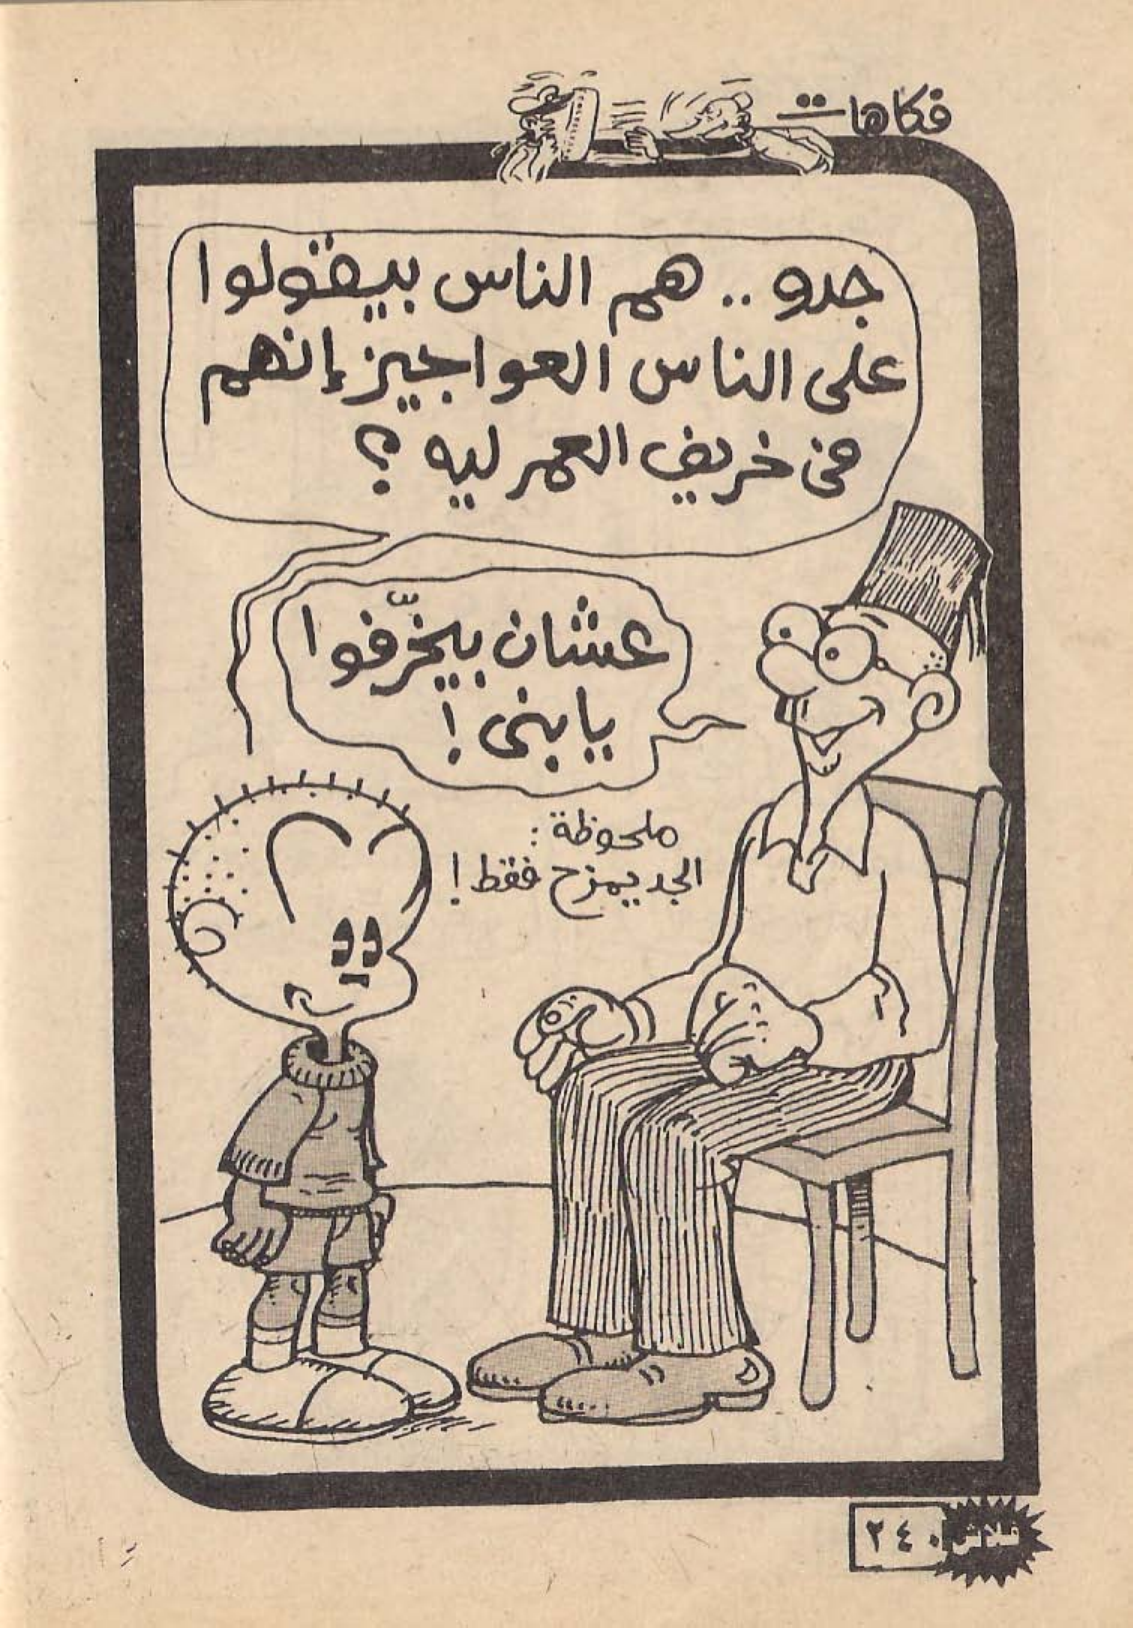 فكاهات
جدو .. هم الناس بيقولوا
على الناس العواجيز إنهم
فى خريف العمر ليه ؟
عشان بيخرّفوا
يابنى !
ملحوظة :
الجد يمزح فقط !
فلاش ٢٤٠